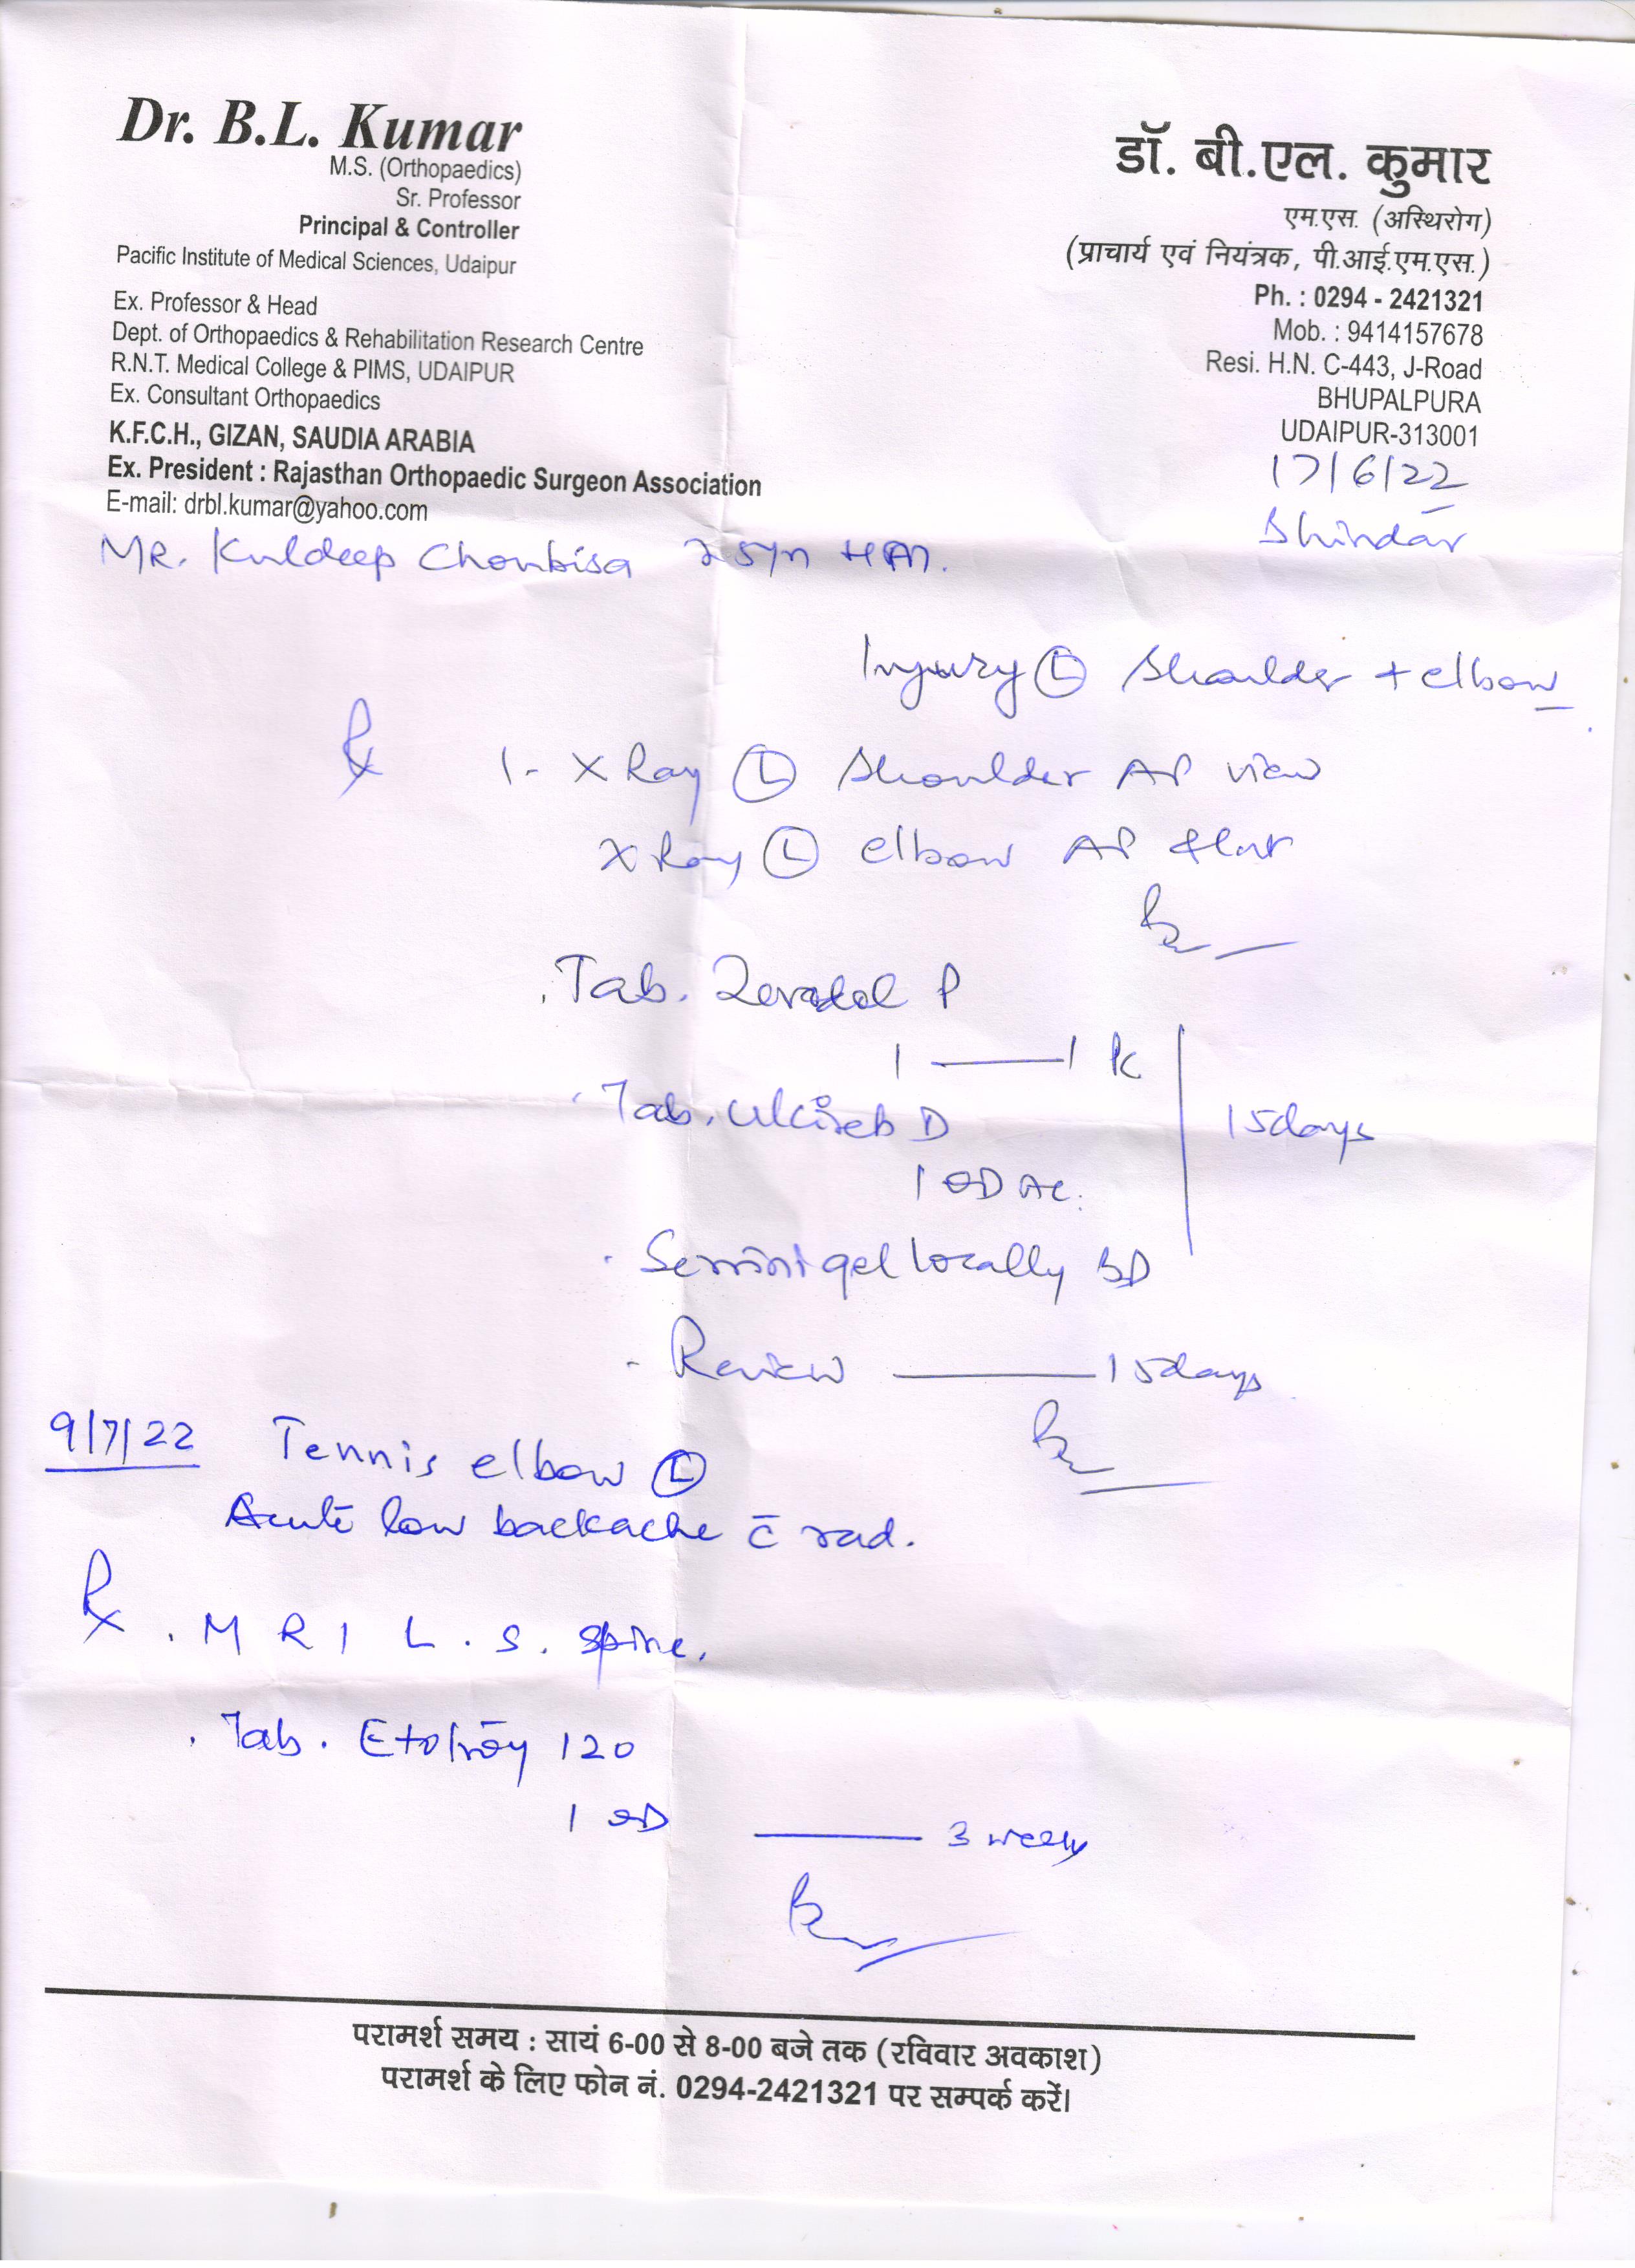 Dr. B.L. Kumar
M.S. (Orthopaedics)
Sr. Professor
Principal & Controller
Pacific Institute of Medical Sciences, Udaipur
Ex. Professor & Head
Dept. of Orthopaedics & Rehabilitation Research Centre
R.N.T. Medical College & PIMS, UDAIPUR
Ex. Consultant Orthopaedics
K.F.C.H., GIZAN, SAUDIA ARABIA
Ex. President : Rajasthan Orthopaedic Surgeon Association
E-mail: drbl.kumar@yahoo.com
डॉ. बी.एल. कुमार
एम.एस. (अस्थिरोग)
(प्राचार्य एवं नियंत्रक, पी.आई.एम.एस.)
Ph. : 0294 - 2421321
Mob. : 9414157678
Resi. H.N. C-443, J-Road
BHUPALPURA
UDAIPUR-313001
17/6/22
Bhindar
MR. Kuldeep Choubisa
Injury Ⓛ Shoulder + elbow
℞ 1- X Ray Ⓛ Shoulder AP view
X Ray Ⓛ elbow AP & lat
Tab. P
1 — 1 PC
Tab. D
15days
1 OD AC.
gel locally BD
Review — 15days
9/7/22 Tennis elbow Ⓛ
Acute low backache c̄ rad.
℞ . M R I L . S . spine.
. Tab. 120
1 OD — 3 weeks
परामर्श समय : सायं 6-00 से 8-00 बजे तक (रविवार अवकाश)
परामर्श के लिए फोन नं. 0294-2421321 पर सम्पर्क करें।